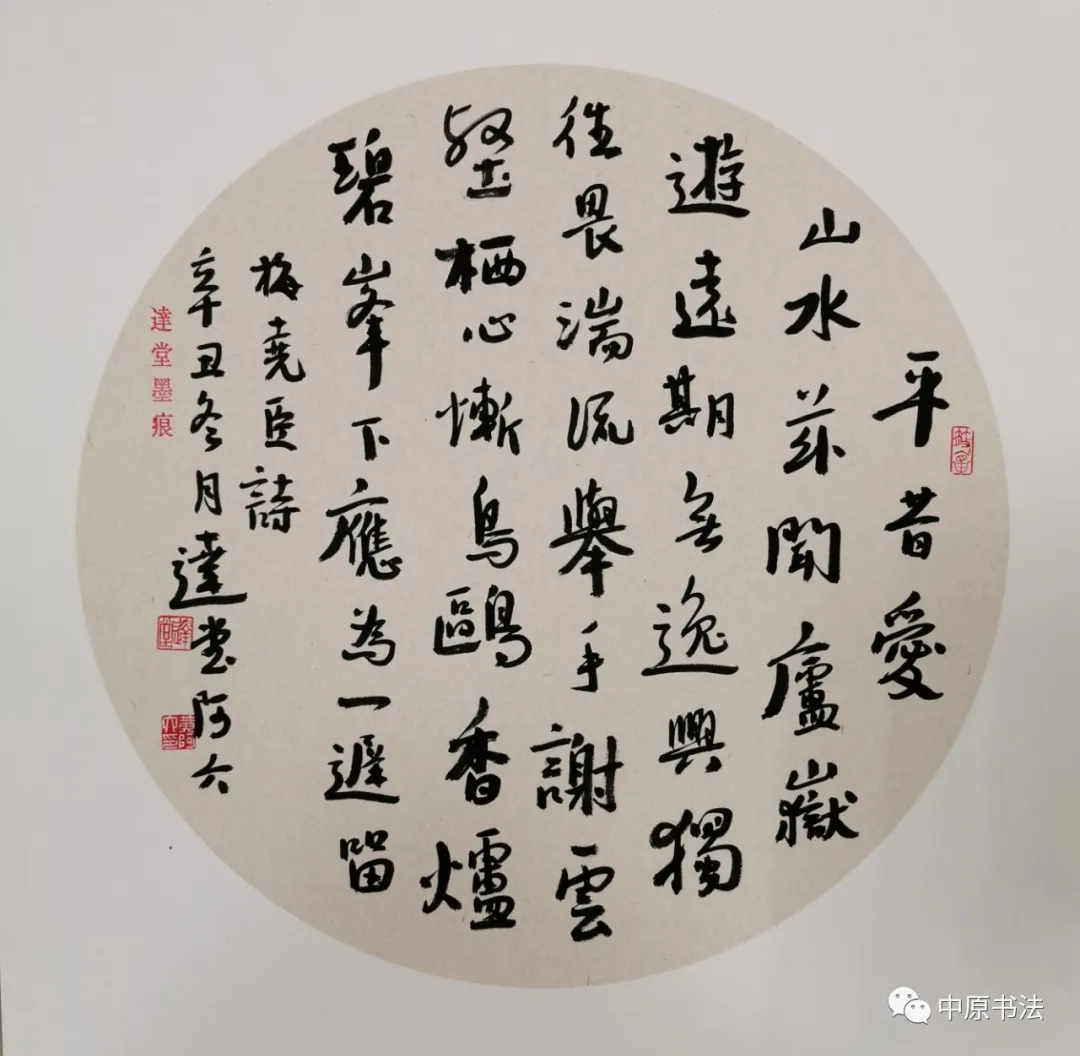 平昔愛
山水茲聞廬嶽
遊遠期無逸興獨
往畏湍流舉手謝雲
壑栖心慚鳥鷗香爐
碧峯下應為一遲留
梅堯臣詩
辛丑冬月達堂阿六
達堂墨痕
達堂
中原书法